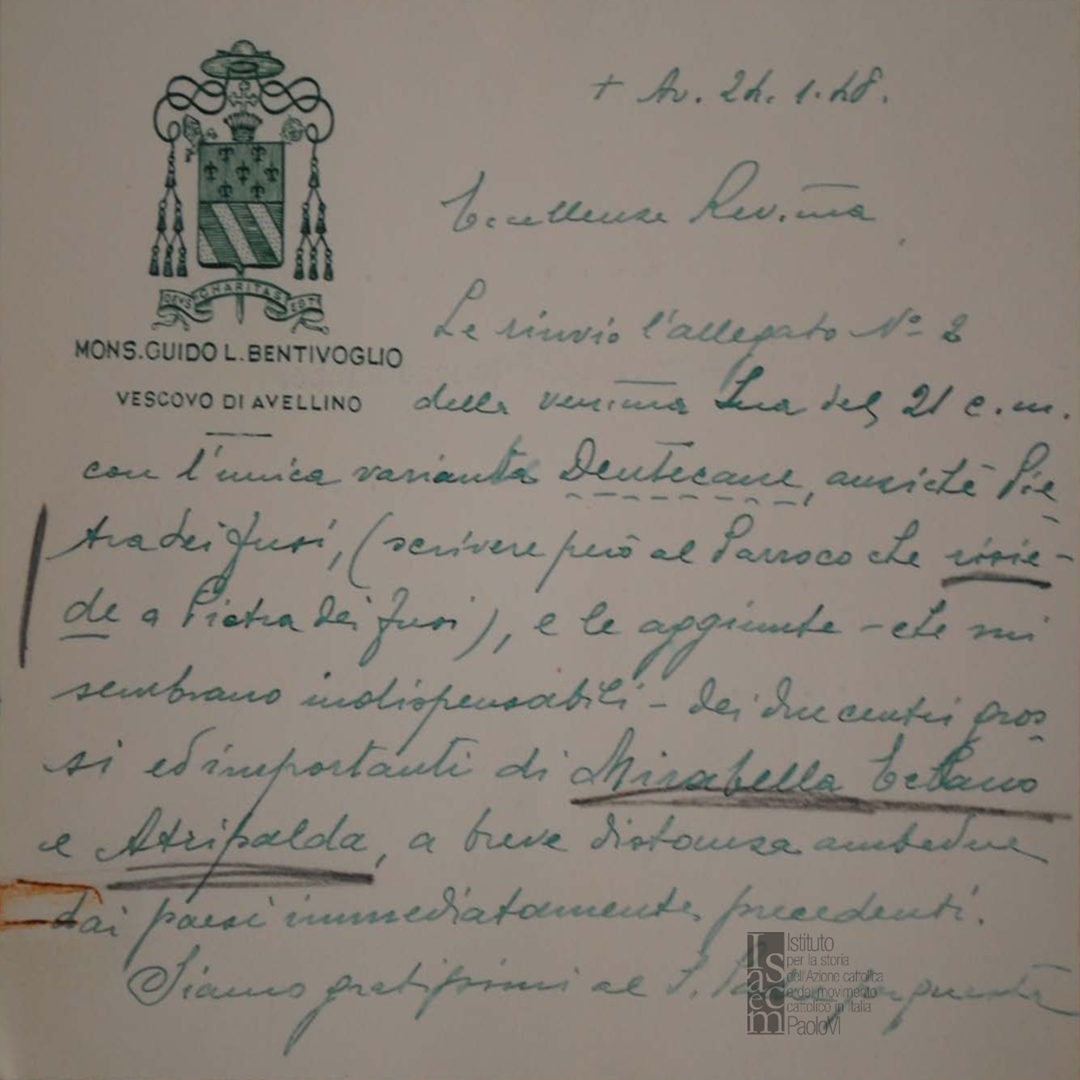 DEUS CHARITAS EST
MONS. GUIDO L. BENTIVOGLIO
VESCOVO DI AVELLINO
+ Av. 24. 1. 48.
Eccellenza Rev.ma
Le rinvio l'allegato No 2
della ven.ma Sua del 21 c. m.
con l'unica variante Dentecane, anzichè Pie-
tra dei Fusi, (scrivere però al Parroco che risie-
de a Pietra dei Fusi), e le aggiunte - che mi
sembrano indispensabili - dei due centri gros-
si ed importanti di Mirabella Eclano
e Atripalda, a breve distanza ambedue
dai paesi immediatamente precedenti.
Siamo gratissimi al S. questa
Istituto
per la storia
dell'Azione cattolica
e del movimento
cattolico in Italia
Paolo VI
Isacem